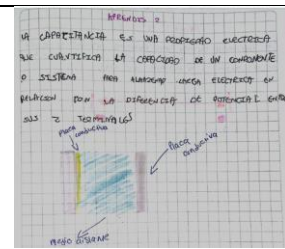 APRENDIZ 2
LA CAPACITANCIA ES UNA PROPIEDAD ELECTRICA
QUE CUANTIFICA LA CAPACIDAD DE UN COMPONENTE
O SISTEMA PARA ALMACENAR CARGA ELECTRICA EN
RELACION CON LA DIFERENCIA DE POTENCIAL ENTRE
SUS 2 TERMINALES
Placa
conductiva
Placa
conductiva